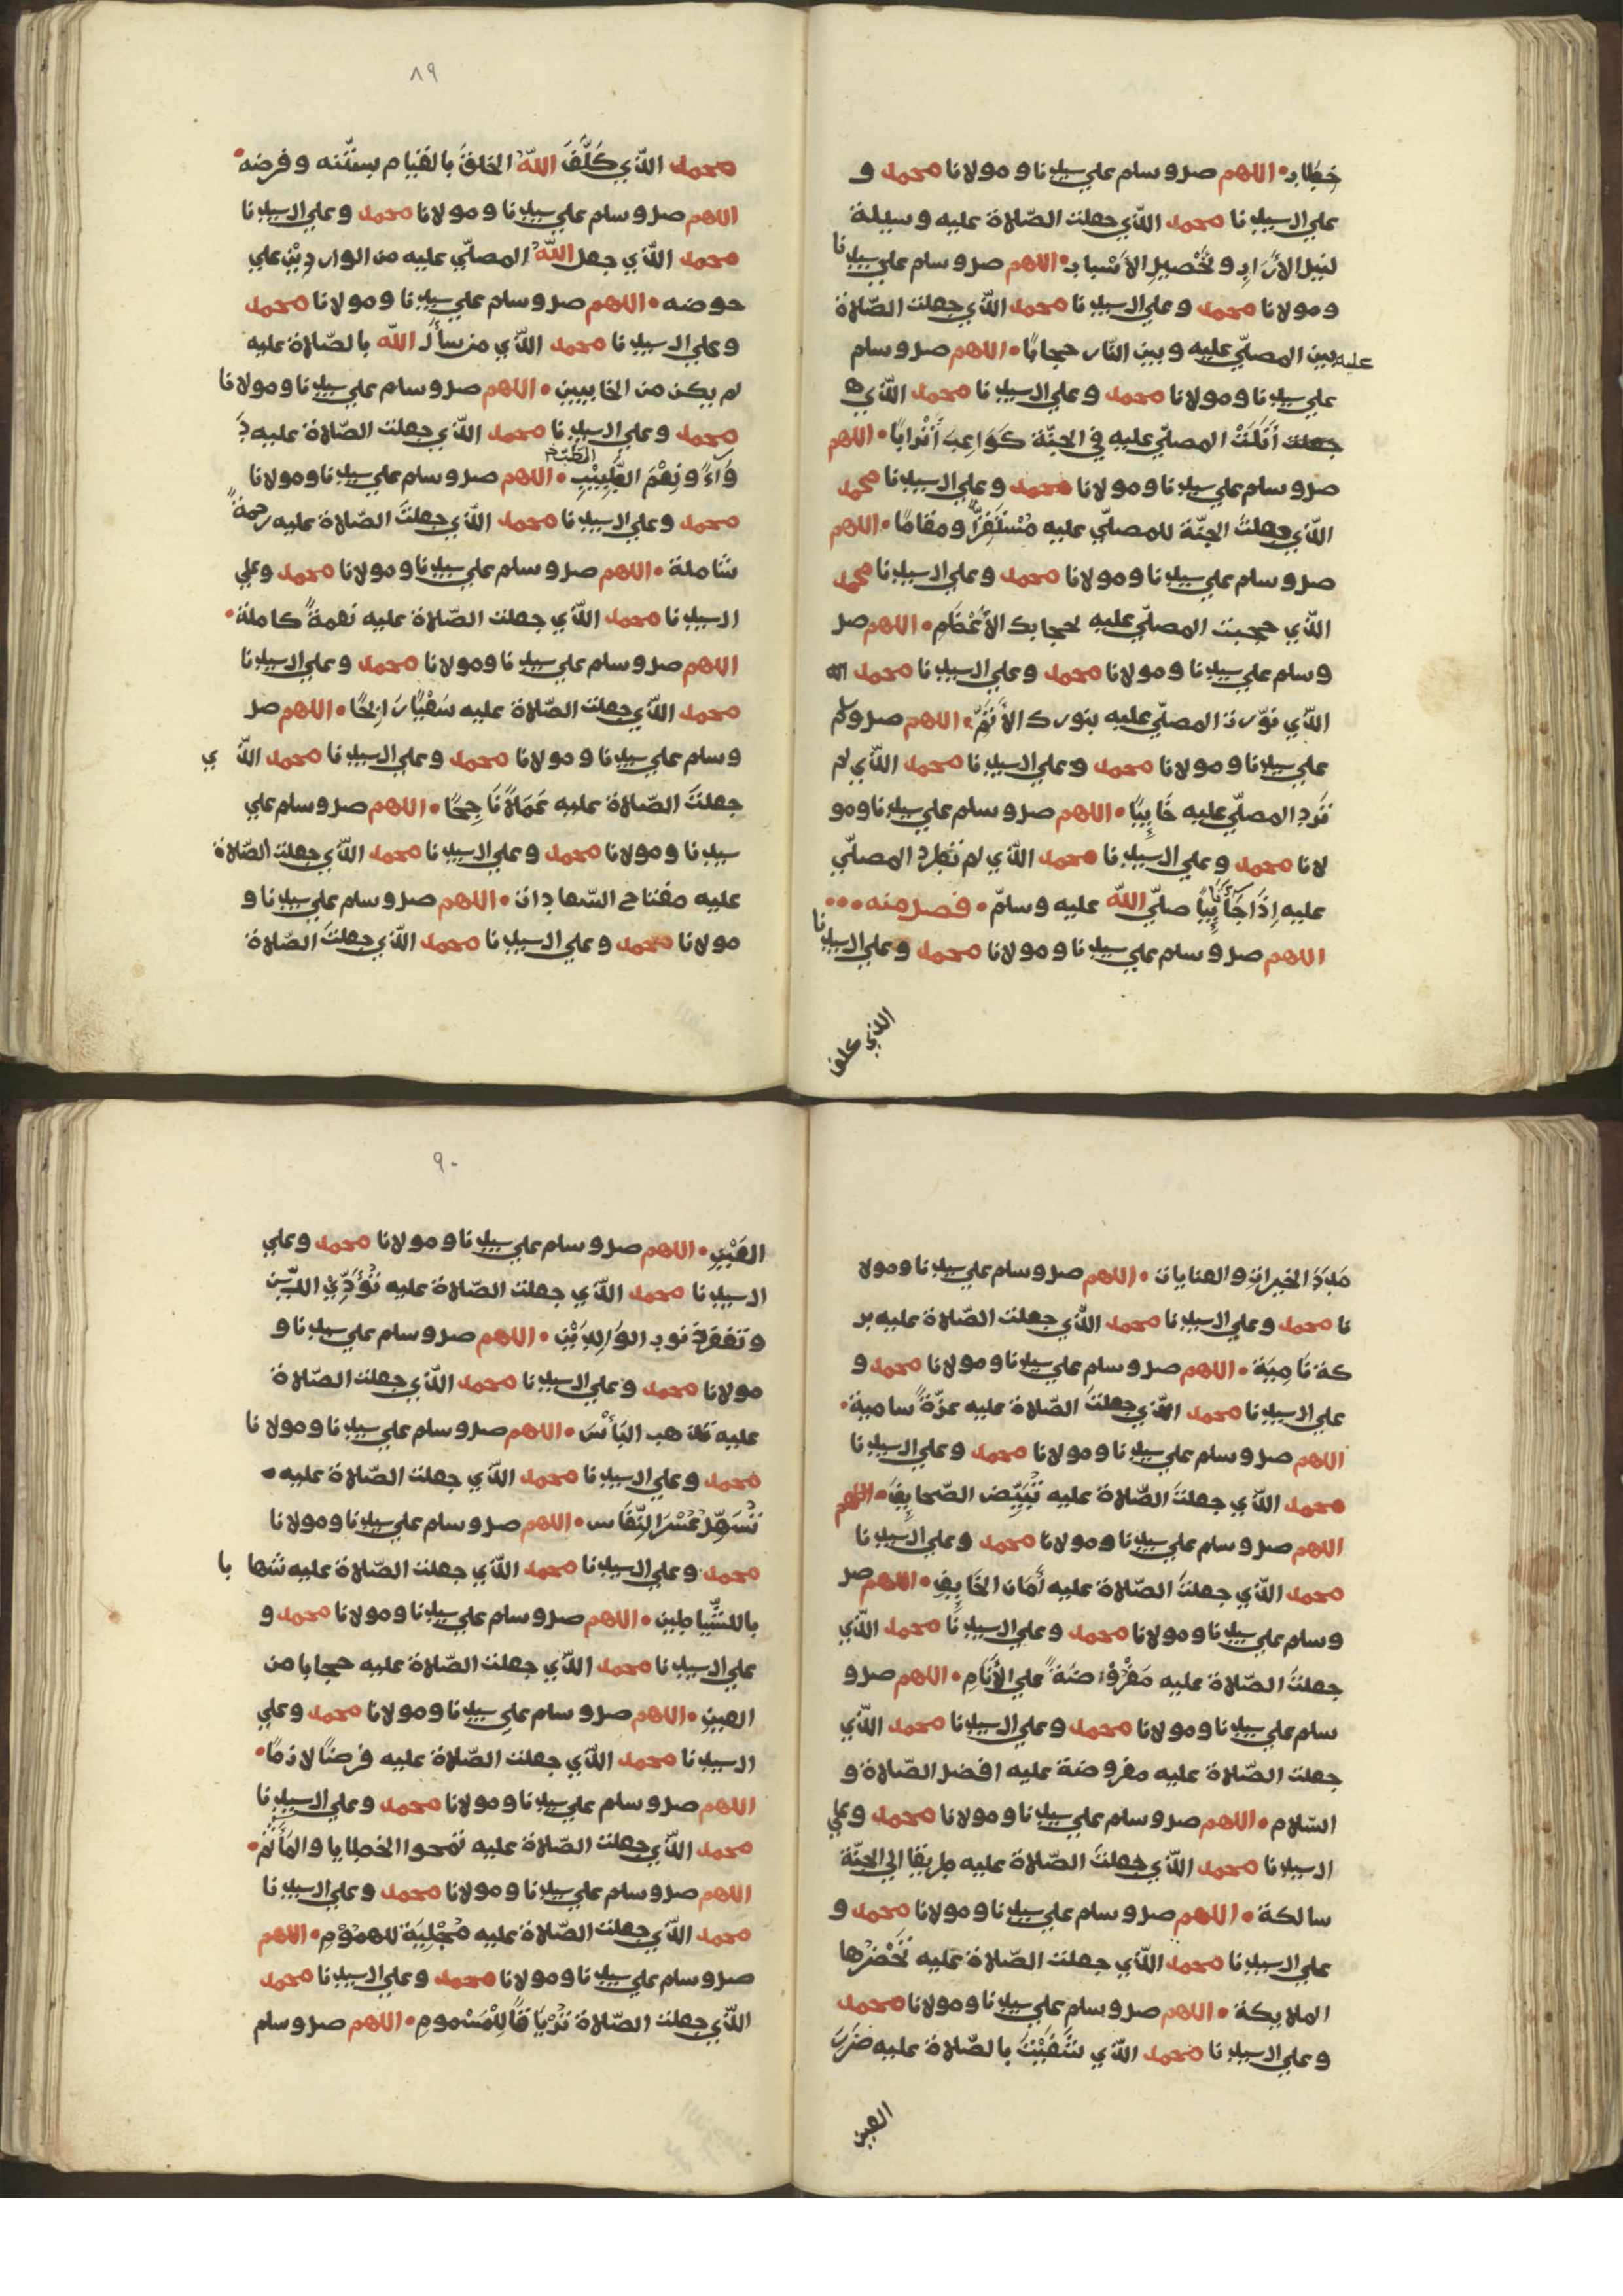 خطاب اللهم صل وسلم علي سيدنا ومولانا محمد و
علي ال سيدنا محمد الذي جعلت الصّلاة عليه وسيلة
لنيل الأرَابِ وتَحْصِيلِ الأسْبابِ اللهم صل وسلم علي سيدنا
ومولانا محمد وعلي ال سيدنا محمد الذي جعلت الصّلاة
عليه بين المصلّي عليه وبين النّار حجابًا اللهم صل وسلم
علي سيدنا ومولانا محمد وعلي ال سيدنا محمد الذي
جعلت أَنَلْتَ المصلّي عليه في الجنّة كَوَاعِبَ أَتْرابًا اللهم
صل وسلم علي سيدنا ومولانا محمد وعلي ال سيدنا محمد
الذي جعلتَ الجنّة للمصلّي عليه مُسْتَقَرًّا ومقامًا اللهم
صل وسلم علي سيدنا ومولانا محمد وعلي ال سيدنا محمد
الذي حجبت المصلّي عليه بحجابك الأعْظَمِ اللهم صل
وسلم علي سيدنا ومولانا محمد وعلي ال سيدنا محمد
الذي نوّرت المصلّي عليه بنورك الأتَمِّ اللهم صل وسلم
علي سيدنا ومولانا محمد وعلي ال سيدنا محمد الذي لم
تَرُدِ المصلّي عليه خَايِبًا اللهم صل وسلم علي سيدنا ومو
لانا محمد وعلي ال سيدنا محمد الذي لم تطرد المصلّي
عليه إذَا جَآ تَايِبًا صلّي اللّه عليه وسلّم فصل منه
اللهم صل وسلم علي سيدنا ومولانا محمد وعلي ال سيدنا
الذي كلف
٨٩
محمد الذي كَلَّفَ اللّهُ الخلقَ بالقيام بسنّته وفرضه
اللهم صل وسلم علي سيدنا ومولانا محمد وعلي ال سيدنا
محمد الذي جعل اللّهُ المصلّي عليه من الوارِدِيْنَ علي
حوضه اللهم صل وسلم علي سيدنا ومولانا محمد
وعلي ال سيدنا محمد الذي من سأل اللّه بالصّلاة عليه
لم يكن من الخايبين اللهم صل وسلم علي سيدنا ومولانا
محمد وعلي ال سيدنا محمد الذي جعلت الصّلاة عليه دَ
وَآءً ونِعْمَ الطَّبِيْبِ اللهم صل وسلم علي سيدنا ومولانا
محمد وعلي ال سيدنا محمد الذي جعلتَ الصّلاة عليه رحمةً
شاملة اللهم صل وسلم علي سيدنا ومولانا محمد وعلي
ال سيدنا محمد الذي جعلت الصّلاة عليه نعمةً كاملة
اللهم صل وسلم علي سيدنا ومولانا محمد وعلي ال سيدنا
محمد الذي جعلت الصّلاة عليه سَعْيًا رَابِحًا اللهم صل
وسلم علي سيدنا ومولانا محمد وعلي ال سيدنا محمد الذ ي
جعلتَ الصّلاة عليه عَمَلاً نَاجِحًا اللهم صل وسلم علي
سيدنا ومولانا محمد وعلي ال سيدنا محمد الذي جعلت الصّلاة
عليه مفتاح السّعادات اللهم صل وسلم علي سيدنا و
مولانا محمد وعلي ال سيدنا محمد الذي جعلتَ الصّلاة
مَدَدَ الخيراتِ والعنايات اللهم صل وسلم علي سيدنا ومولا
نا محمد وعلي ال سيدنا محمد الذي جعلت الصّلاة عليه بر
كة نَامِيَة اللهم صل وسلم علي سيدنا ومولانا محمد و
علي ال سيدنا محمد الذي جعلتَ الصّلاة عليه عزّةً سامية
اللهم صل وسلم علي سيدنا ومولانا محمد وعلي ال سيدنا
محمد الذي جعلتَ الصّلاة عليه تُبَيِّض الصّحايِفَ اللهم
اللهم صل وسلم علي سيدنا ومولانا محمد وعلي ال سيدنا
محمد الذي جعلتَ الصّلاة عليه أَمَان الخَايِفِ اللهم صل
وسلم علي سيدنا ومولانا محمد وعلي ال سيدنا محمد الذي
جعلتَ الصّلاة عليه مَفْرُوْضَةً علي الأنَامِ اللهم صل و
سلم علي سيدنا ومولانا محمد وعلي ال سيدنا محمد الذي
جعلت الصّلاة عليه مفروضة عليه افضل الصّلاة و
السّلام اللهم صل وسلم علي سيدنا ومولانا محمد وعلي
ال سيدنا محمد الذي جعلتَ الصّلاة عليه طريقا الي الجنّة
سالكة اللهم صل وسلم علي سيدنا ومولانا محمد و
علي ال سيدنا محمد الذي جعلت الصّلاة عليه تَحْضُرُها
الملايكة اللهم صل وسلم علي سيدنا ومولانا محمد
وعلي ال سيدنا محمد الذي شَفَيْتَ بالصّلاة عليه ضَرَبَ
العين
٩٠
العَيْنِ اللهم صل وسلم علي سيدنا ومولانا محمد وعلي
ال سيدنا محمد الذي جعلت الصّلاة عليه تُؤَدِّيْ الدَّيْن
وتغفر ذنوب الوَالِدَيْنِ اللهم صل وسلم علي سيدنا و
مولانا محمد وعلي ال سيدنا محمد الذي جعلت الصّلاة
عليه تذهب البَأْسَ اللهم صل وسلم علي سيدنا ومولانا
محمد وعلي ال سيدنا محمد الذي جعلت الصّلاة عليه
تُسَهِّلُ عُسْرَ النِّفَاس اللهم صل وسلم علي سيدنا ومولانا
محمد وعلي ال سيدنا محمد الذي جعلت الصّلاة عليه شها با
با للشّياطين اللهم صل وسلم علي سيدنا ومولانا محمد و
علي ال سيدنا محمد الذي جعلت الصّلاة عليه حجابا من
العين اللهم صل وسلم علي سيدنا ومولانا محمد وعلي
ال سيدنا محمد الذي جعلت الصّلاة عليه فرضًا لازمًا
اللهم صل وسلم علي سيدنا ومولانا محمد وعلي ال سيدنا
محمد الذي جعلت الصّلاة عليه تمحوا الخطايا والمَأَثِمَ
اللهم صل وسلم علي سيدنا ومولانا محمد وعلي ال سيدنا
محمد الذي جعلت الصّلاة عليه مُجْلِيَةً للهمُوْمِ اللهم
صل وسلم علي سيدنا ومولانا محمد وعلي ال سيدنا محمد
الذي جعلت الصّلاة تِرْيَاقًا لِلْمَسْمومِ اللهم صل وسلم